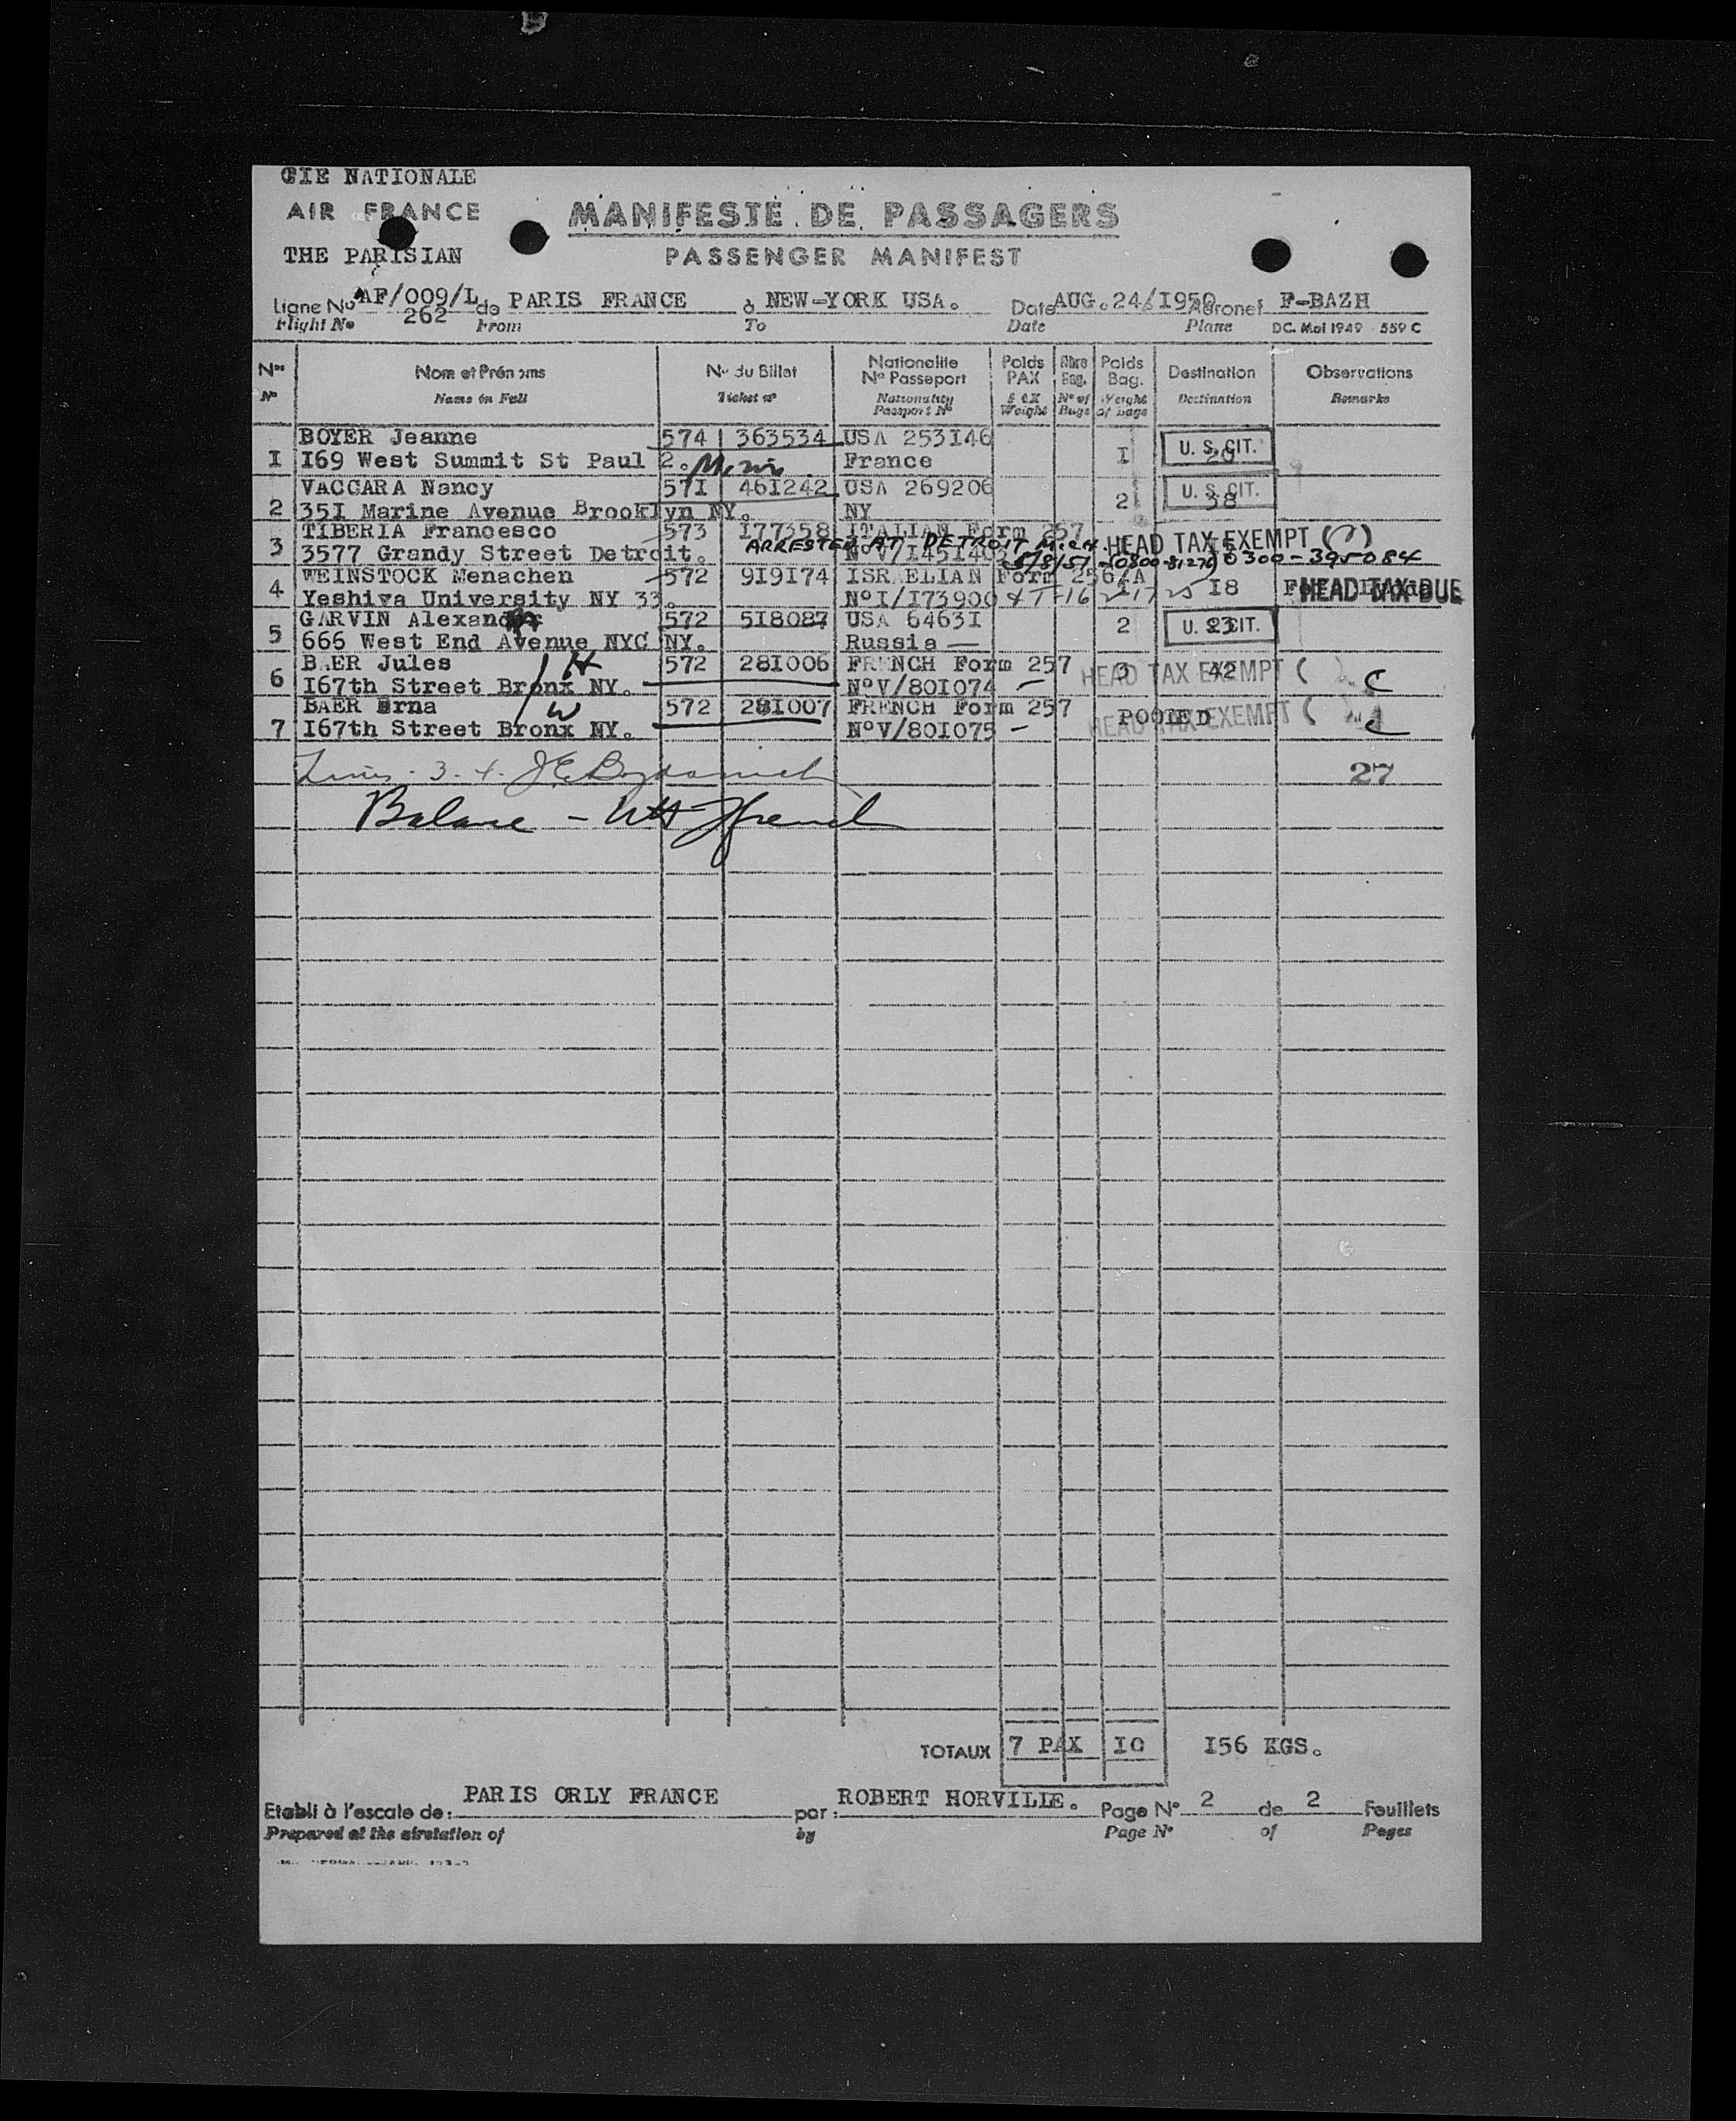 CIE NATIONALE
AIR FRANCE
MANIFESTE DE PASSAGERS
THE PARISIAN
PASSENGER MANIFEST
Ligne No AF/009/L de PARIS FRANCE à NEW-YORK USA. Date AUG.24/I950 Aéronef F-BAZH
Flight No 262 From To Date Plane DC. Mai 1949 559 C
Nos Nom et Prénoms No du Billet Nationalite No Passeport Poids PAX Nbre Bag. Poids Bag. Destination Observations
No Name in Full Ticket no Nationality Passport No PAX Weight No of Bags Weight of bags Destination Remarks
BOYER Jeanne 574 363534 USA 253I46 U. S. CIT.
I I69 West Summit St Paul 2. France I
VACCARA Nancy 57I 46I242 USA 269206 U. S. CIT. 38
2 35I Marine Avenue Brooklyn NY. NY 2
TIBERIA Francesco 573 I77358 ITALIAN Form 257
ARRESTED AT DETROIT MICH. HEAD TAX EXEMPT
3 3577 Grandy Street Detroit. 5/8/51 - (0800-81276) 0300-395084
WEINSTOCK Menachen 572 919I74 ISRAELIAN Form 256/A
4 Yeshiva University NY 33. NoI/I73900 I8 HEAD TAX DUE
GARVIN Alexander 572 518087 USA 6463I
5 666 West End Avenue NYC NY. Russia 2 U. S. CIT. 23
BAER Jules H 572 28I006 FRENCH Form 257 HEAD TAX EXEMPT ( ) 42
6 I67th Street Bronx NY. NoV/80I074 C
BAER Erna W 572 28I007 FRENCH Form 257 POOLED HEAD TAX EXEMPT (
7 I67th Street Bronx NY. NoV/80I075 C
27
Balance
TOTAUX 7 PAX IO I56 KGS.
Etabli à l'escale de: PARIS ORLY FRANCE par: ROBERT HORVILLE. Page No 2 de 2 feuillets
Prepared at the airstation of by Page No of Pages